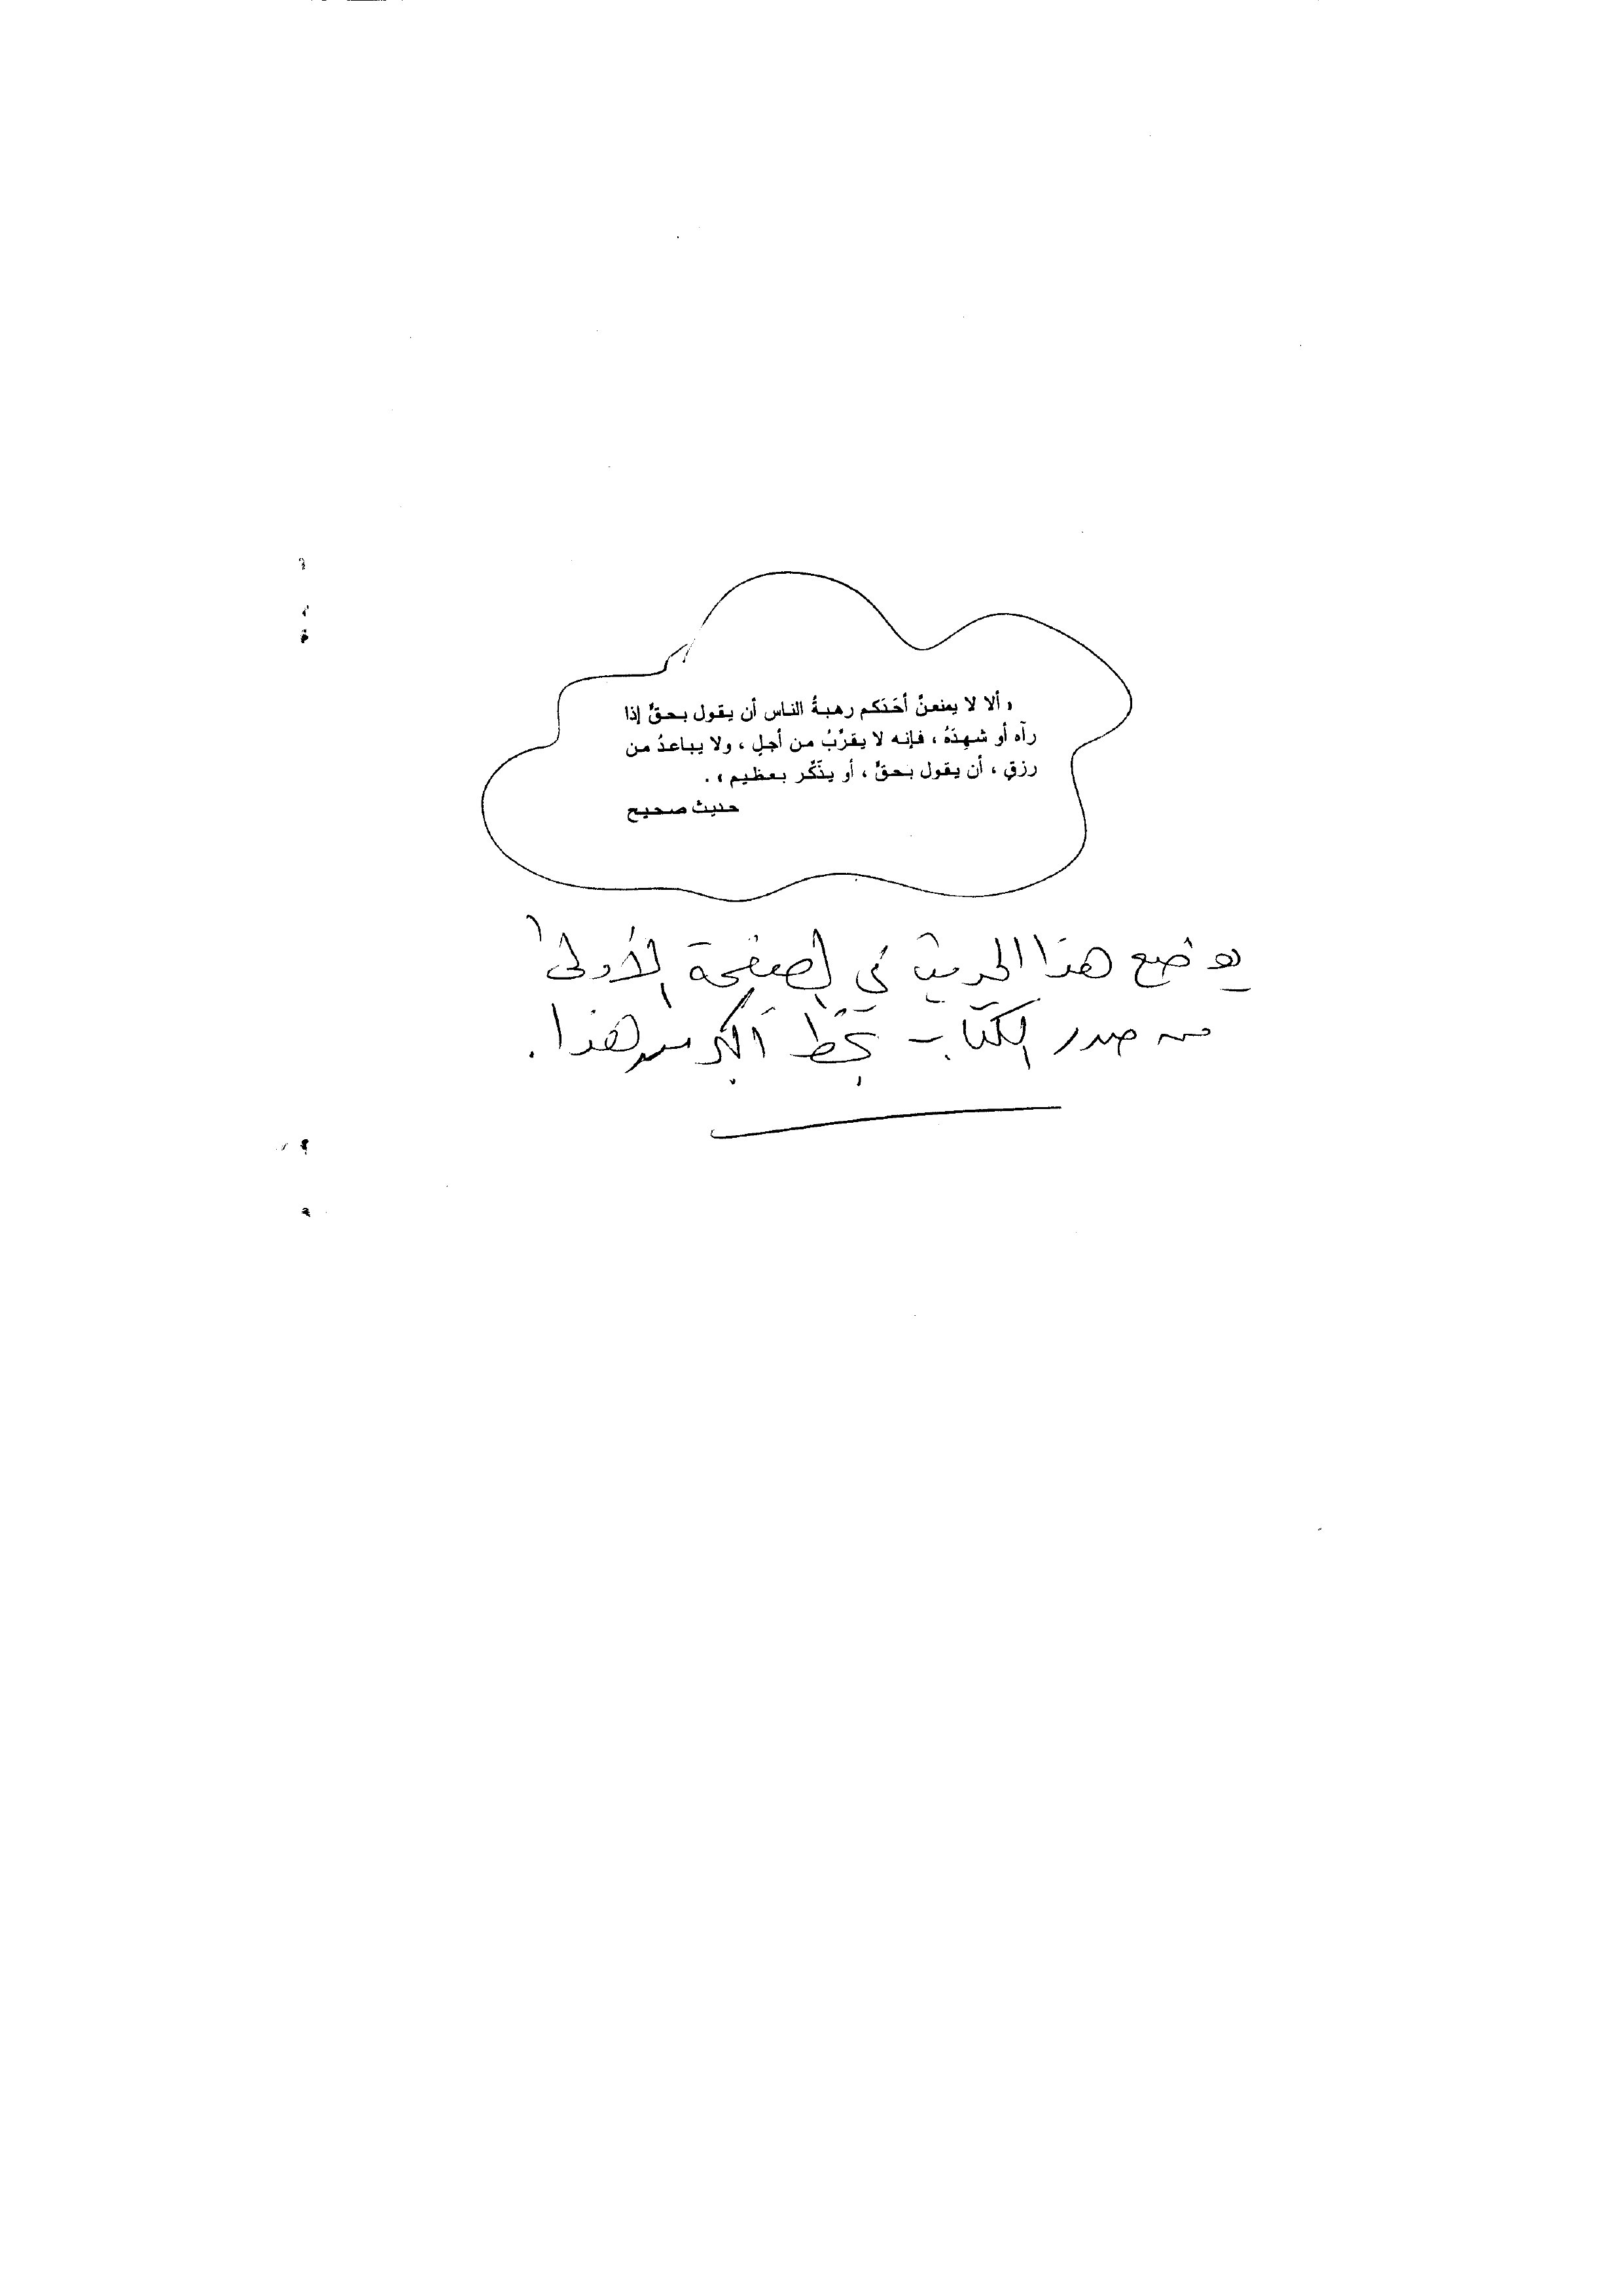 « ألا لا يمنعنَّ أحَدَكم رهبةُ الناس أن يقول بحقٍّ إذا
رآه أو شهِدَهُ ، فإنه لا يقرِّبُ من أجلٍ ، ولا يباعدُ من
رزقٍ ، أن يقول بحقٍّ ، أو يذَكِّر بعظيم » .
حديث صحيح
يوضع هذا الحديث في الصفحة الأولى
من صدر الكتاب بخط أكبر من هذا .